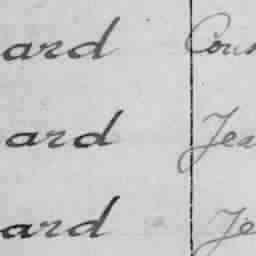 ard Cous
ard Jea
ard Je